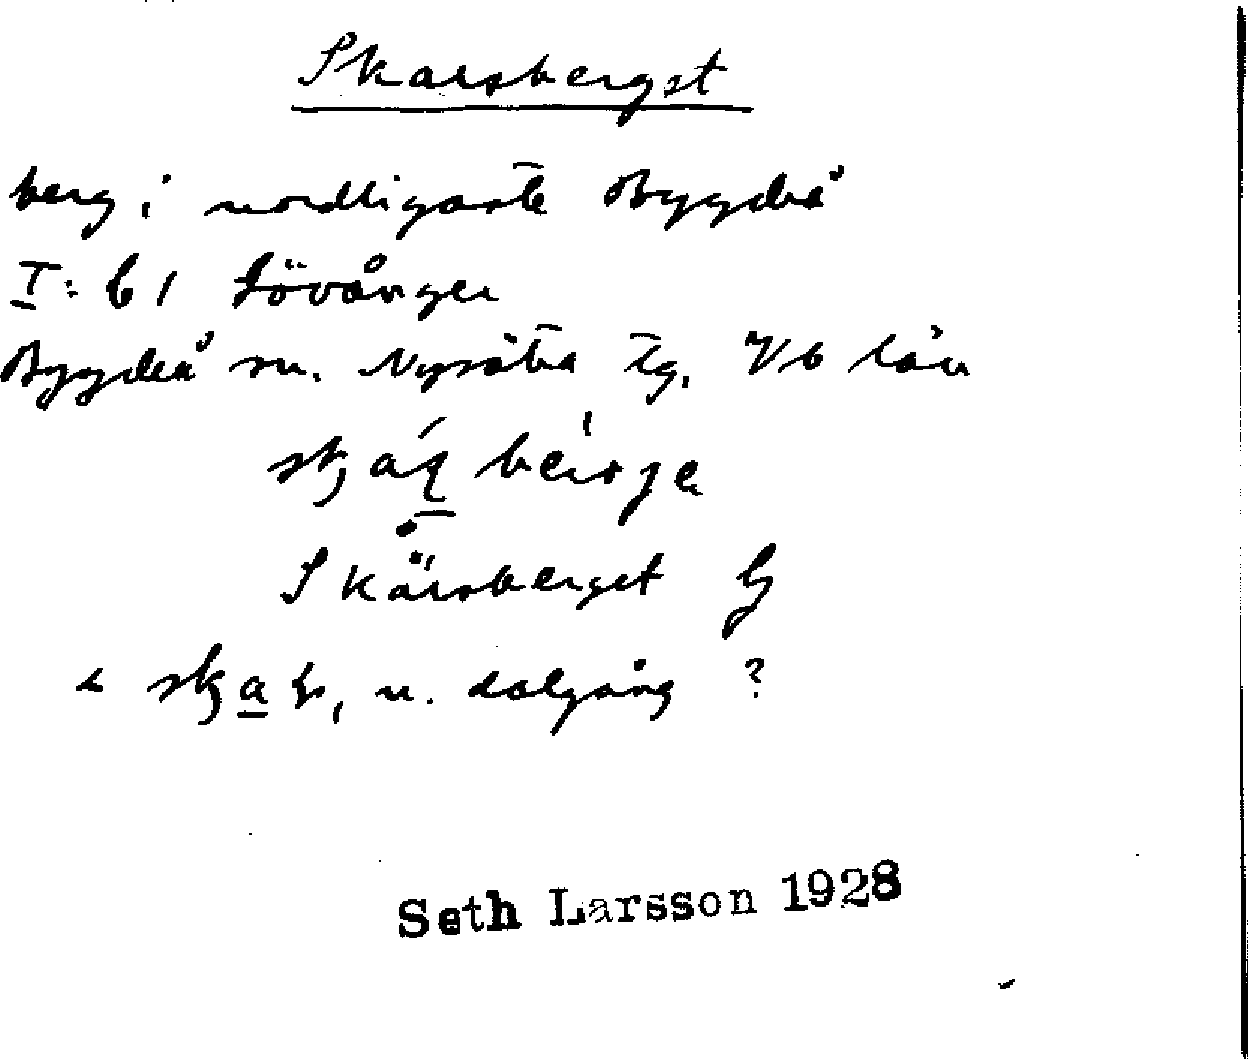 Skarsberget
berg i nordligaste Bygdeå
I: 61 Lövånger
Bygdeå sn. Nysätra tg. Vb län
Skärsberget G
n. dalgång ?
Seth Larsson 1928